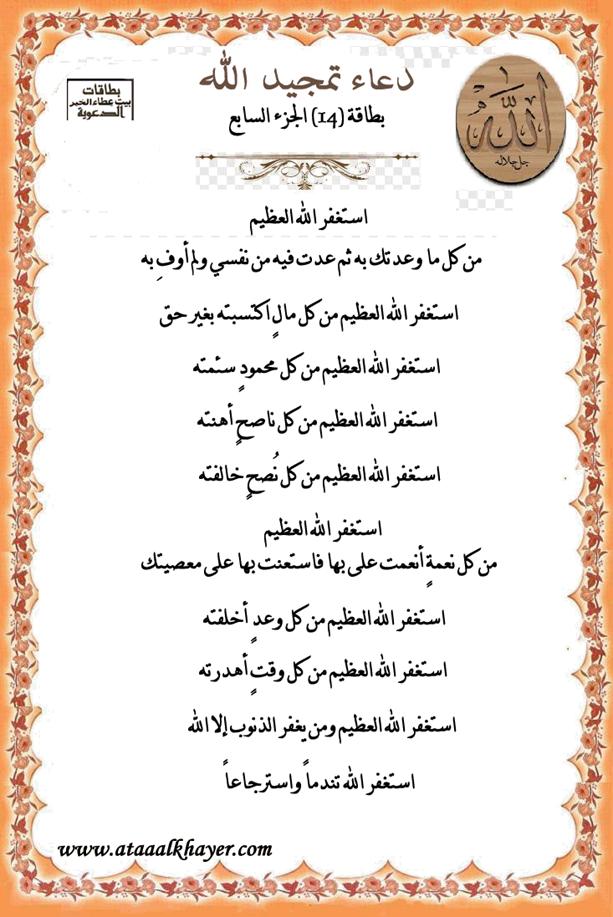 دعاء تمجيد الله
بطاقة (14) الجزء السابع
بطاقات
بيت عطاء الخير
الدعوية
الله
جل جلاله
استغفر الله العظيم
من كل ما وعدتك به ثم عدت فيه من نفسي ولم أوفِ به
استغفر الله العظيم من كل مالٍ اكتسبته بغير حق
استغفر الله العظيم من كل محمودٍ سئمته
استغفر الله العظيم من كل ناصحٍ أهنته
استغفر الله العظيم من كل نُصحٍ خالفته
استغفر الله العظيم
من كل نعمةٍ أنعمت على بها فاستعنت بها على معصيتك
استغفر الله العظيم من كل وعدٍ أخلفته
استغفر الله العظيم من كل وقتٍ أهدرته
استغفر الله العظيم ومن يغفر الذنوب إلا الله
استغفر الله تندماً واسترجاعاً
www.ataaalkhayer.com